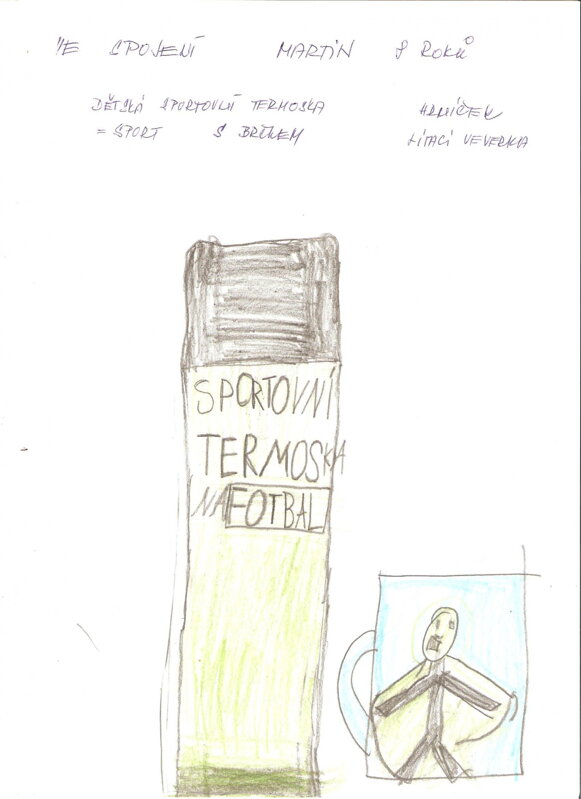 VE SPOJENÍ MARTIN 8 ROKŮ
DĚTSKÁ SPORTOVNÍ TERMOSKA
= SPORT S BRČKEM
HRNÍČEK
LÍTACÍ VEVERKA
SPORTOVNÍ
TERMOSKA
NA FOTBAL